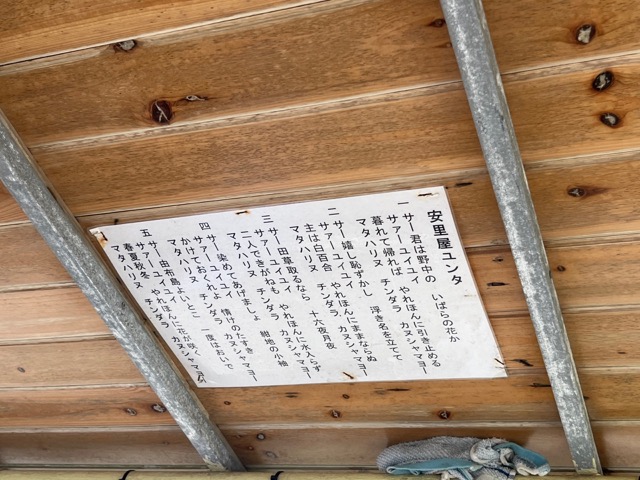 安里屋ユンタ
一 サー君は野中の いばらの花か
サァーユイユイ
暮れて帰れば やれほんに引き止める
マタハリヌ チンダラ カヌシャマヨー
二 サー嬉し恥ずかし 浮き名を立てて
サァーユイユイ
主は白百合 やれほんにままならぬ
マタハリヌ チンダラ カヌシャマヨー
三 サー田草取るなら 十六夜月夜
サァーユイユイ
二人できがねも やれほんに水入らず
マタハリヌ チンダラ カヌシャマヨー
四 サー染めてあげましょ 紺地の小袖
サァーユイユイ
かけておくれよ 情けのたすき
マタハリヌ チンダラ カヌシャマヨー
五 サー由布島よいとこ 一度はおいで
サァーユイユイ
春夏秋冬 やれほんに花が咲く
マタハリヌ チンダラ カヌシャマヨー